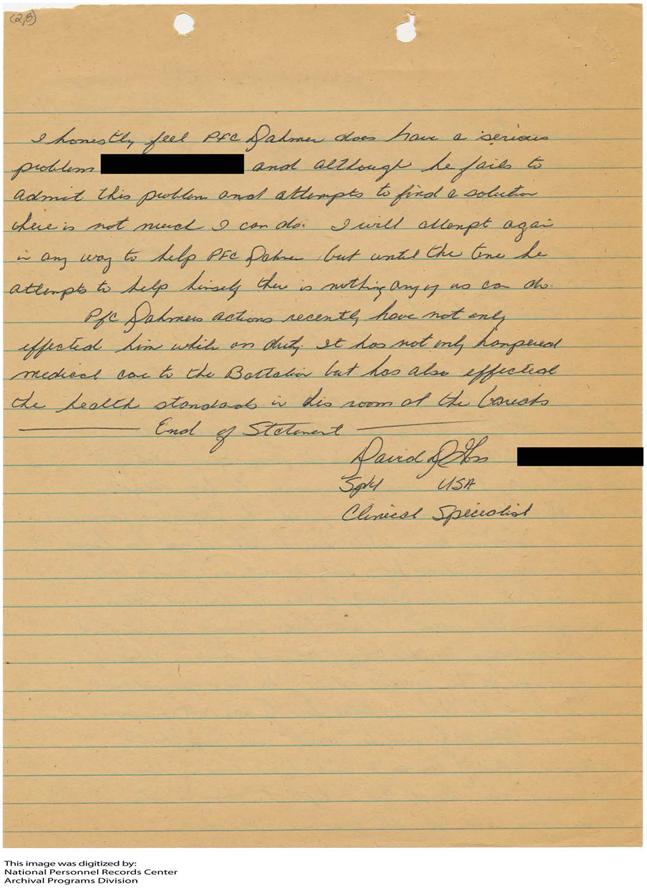 (2,B)
I honestly feel PFC Dahmer does have a serious
problem and although he fails to
admit this problem and attempts to find a solution
there is not much I can do. I will attempt again
in any way to help PFC Dahmer but until the time he
attempts to help himself ther is nothing any of us can do.
Pfc Dahmers actions recently have not only
effected him while on duty It has not only hampered
medical care to the Battalion but has also effected
the health standards in his room at the
End of Statement
David D
USA
Clinical Specialist
This image was digitized by:
National Personnel Records Center
Archival Programs Division